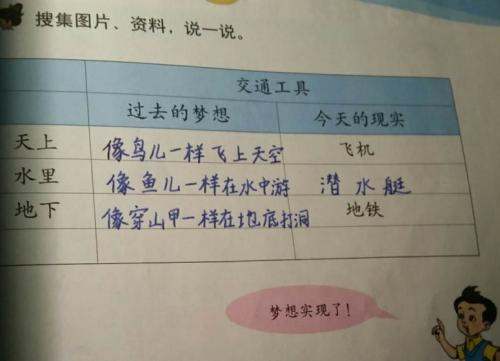 搜集图片、资料，说一说。
交通工具
过去的梦想 今天的现实
天上 像鸟儿一样飞上天空 飞机
水里 像鱼儿一样在水中游 潜水艇
地下 像穿山甲一样在地底打洞 地铁
梦想实现了！